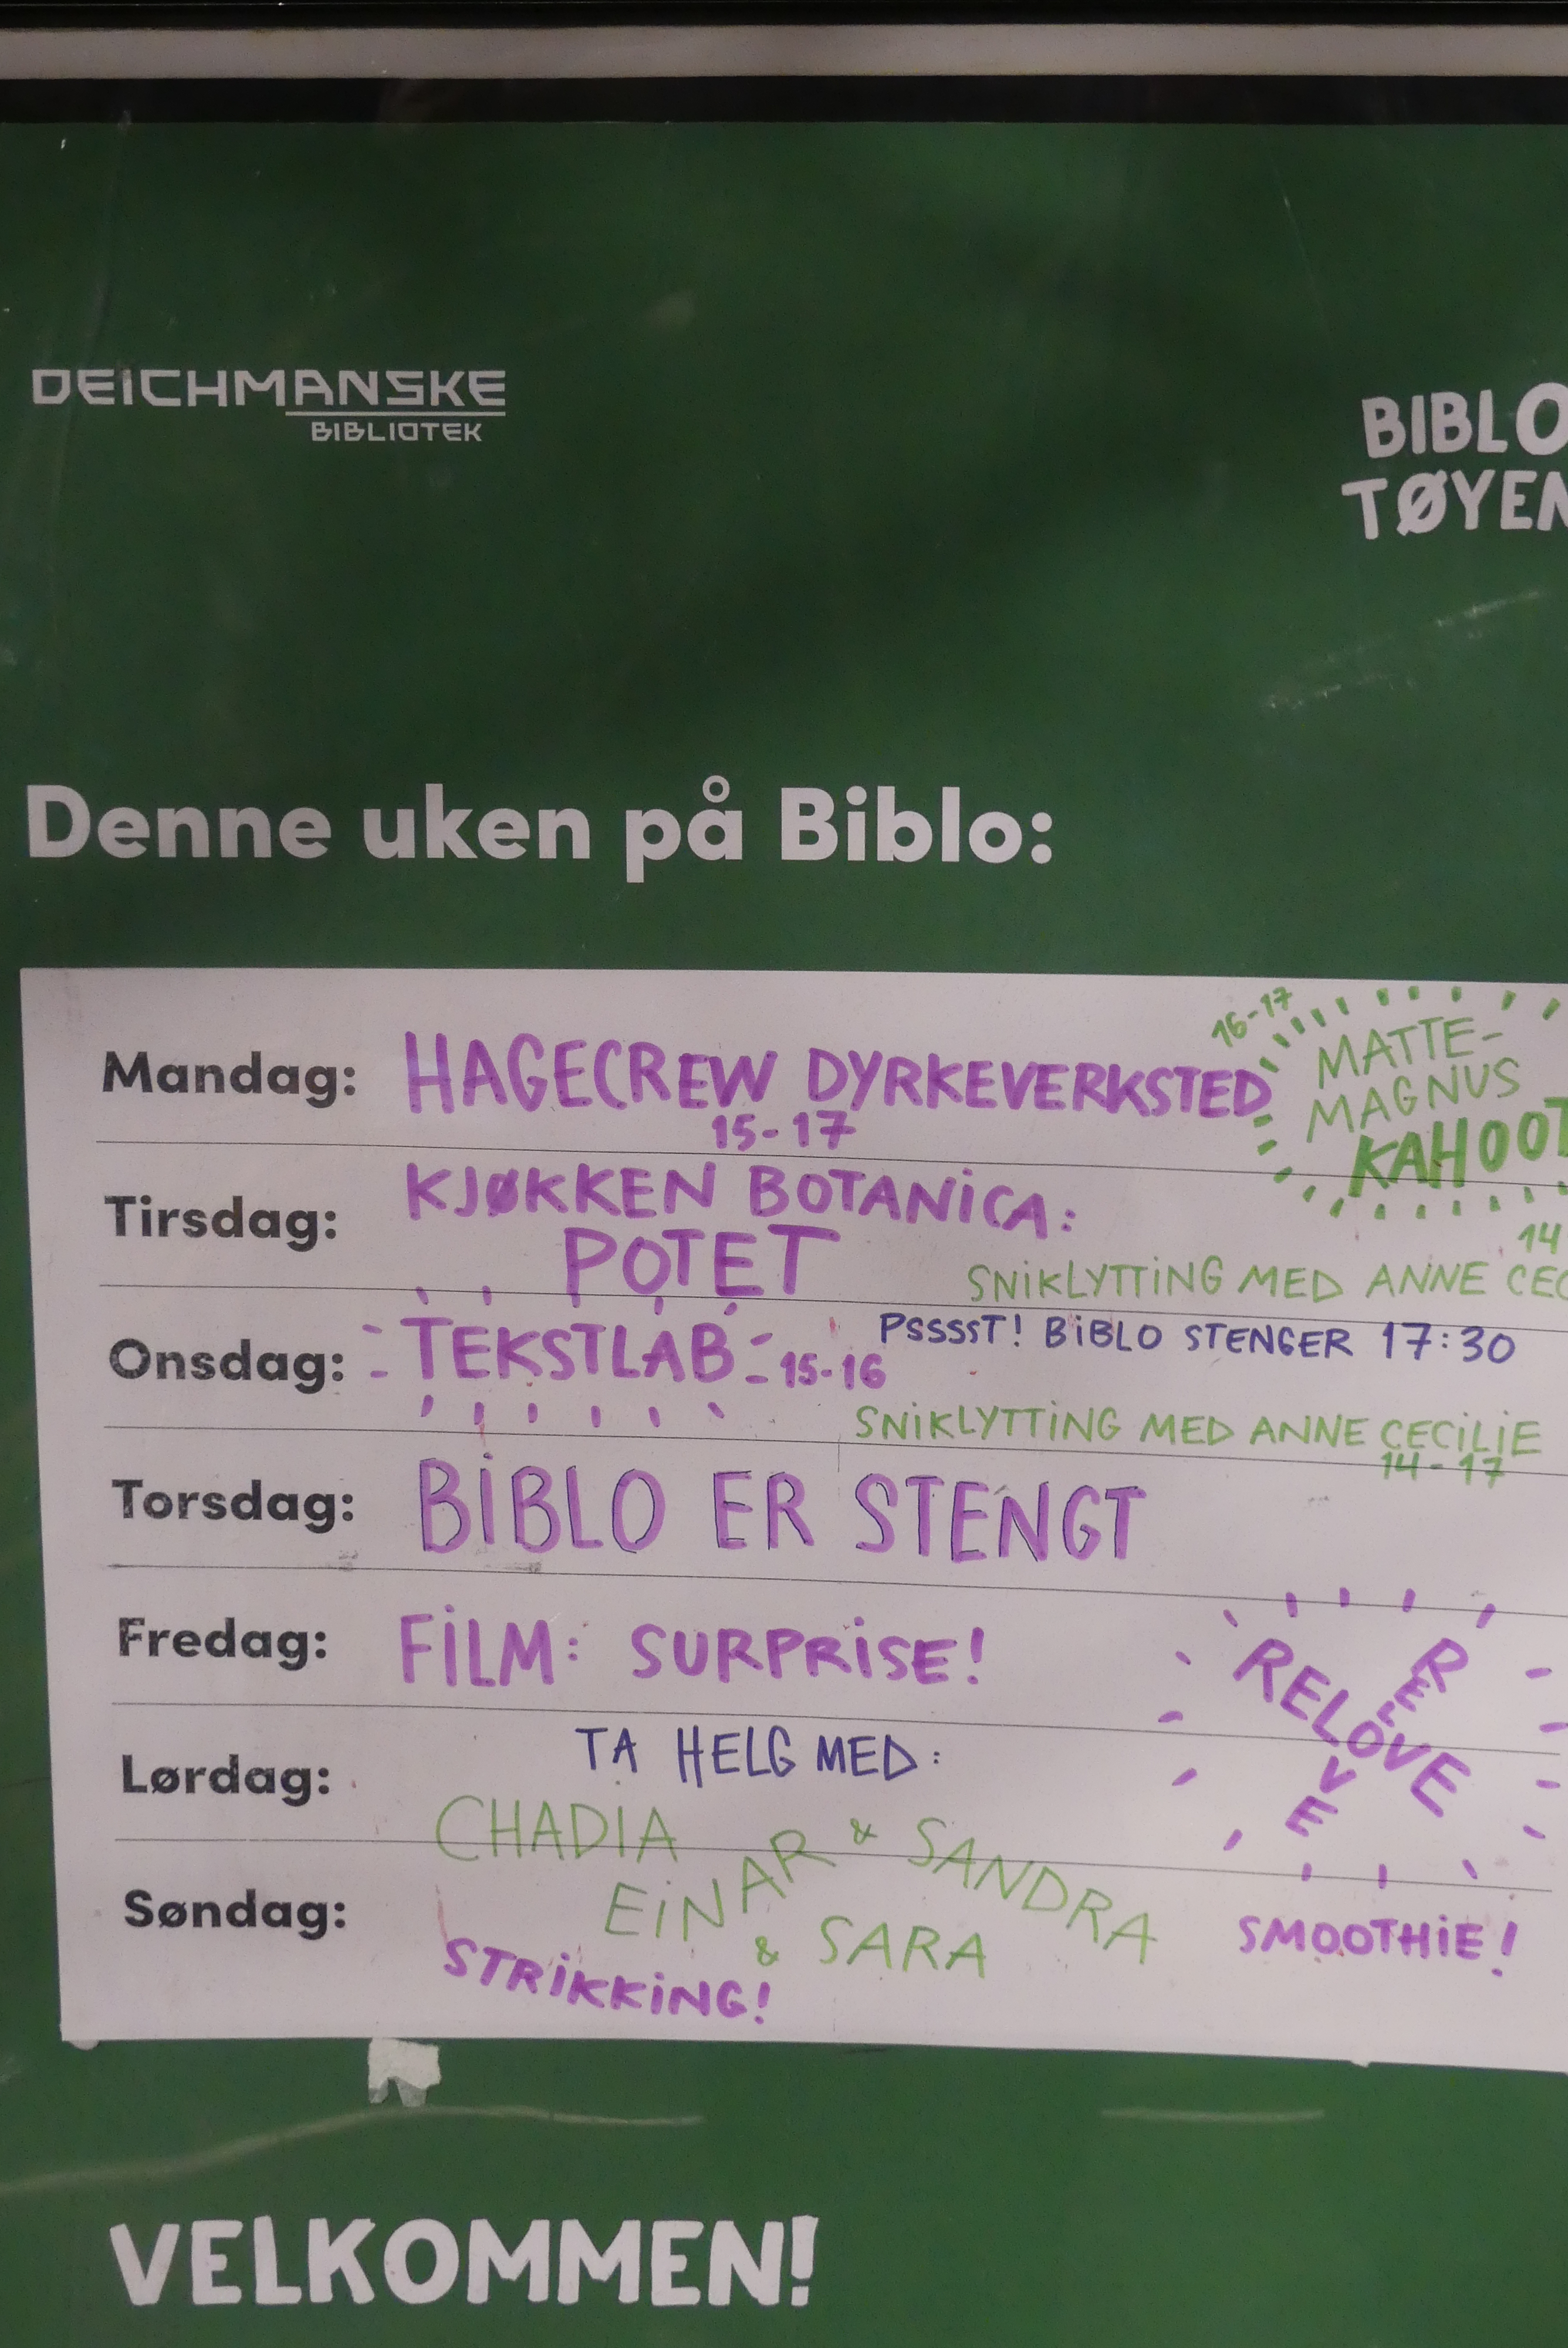 DEICHMANSKE
BIBLIOTEK
BIBLO
TØYEN
Denne uken på Biblo:
Mandag: HAGECREW DYRKEVERKSTED
15-17
16-17
MATTE-
MAGNUS
KAHOOT
Tirsdag: KJØKKEN BOTANICA:
POTET
14
SNIKLYTTING MED ANNE CEC
Onsdag: TEKSTLAB 15-16
PSSSST! BIBLO STENGER 17:30
SNIKLYTTING MED ANNE CECILIE
14-17
Torsdag: BIBLO ER STENGT
Fredag: FILM: SURPRISE!
RELOVE
RELOVE
Lørdag: TA HELG MED:
CHADIA
EINAR & SANDRA
& SARA
Søndag:
STRIKKING!
SMOOTHIE!
VELKOMMEN!